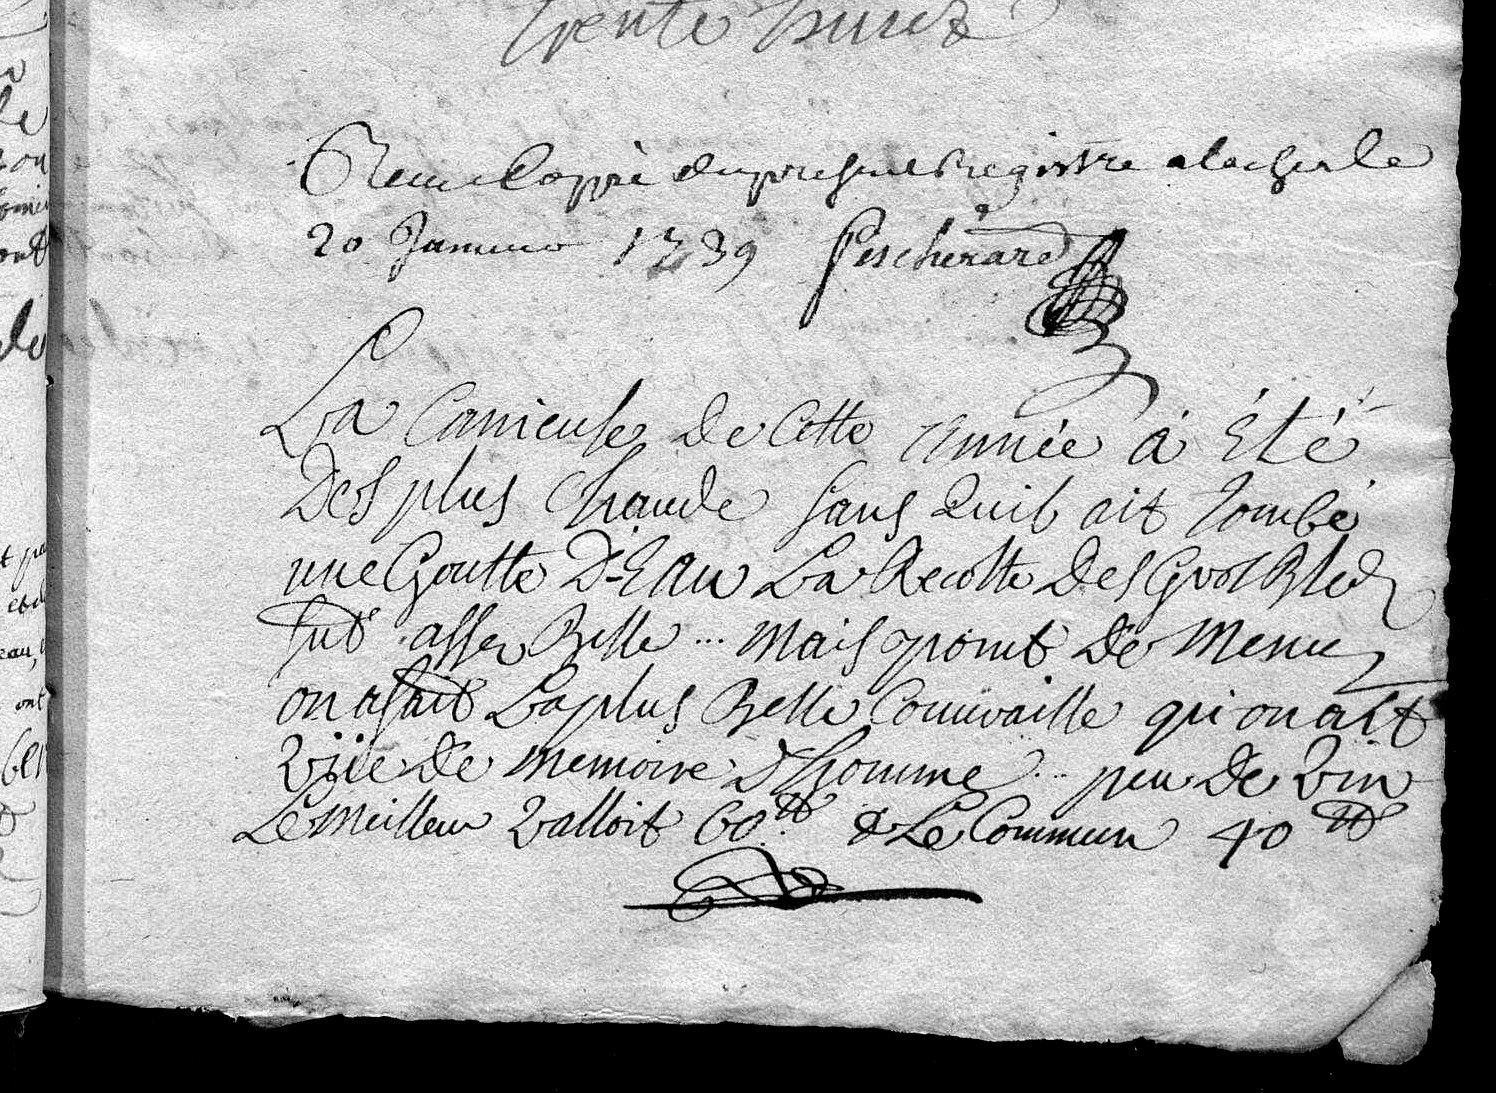 trente huict
Receu Coppie du present Registre a la chesle
20 Janvier 1739 Pescherard
La Canicule de Cette Année à Eté
Des plus Chaude sans Quil ait tombé
une Goutte D'Eau La Recolte Des Gros Bled
fut assez Belle ... mais point de Menu
on a fait La plus Belle Couvraille qu'on ait
vüe de memoire D'homme ... peu de vin
Le Meilleur valloit 60 ₶ & Le Commun 40 ₶